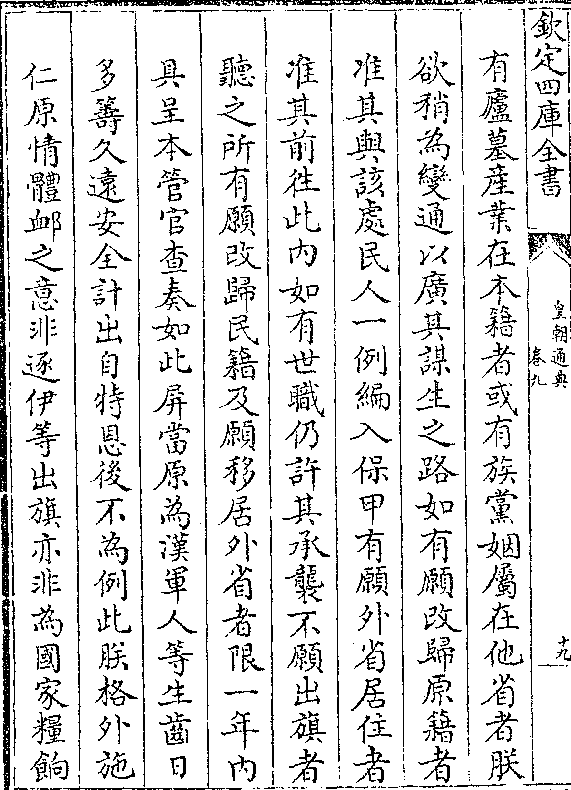 欽定四庫全書
皇朝通典
卷九
十九
有廬墓產業在本籍者或有族黨姻屬在他省者朕
欲稍為變通以廣其謀生之路如有願改歸原籍者
准其與該處民人一例編入保甲有願外省居住者
准其前徃此內如有世職仍許其承襲不願出旗者
聽之所有願改歸民籍及願移居外省者限一年內
具呈本管官查奏如此屏當原為漢軍人等生齒日
多籌久遠安全計出自特恩後不為例此朕格外施
仁原情體䘏之意非逐伊等出旗亦非為國家糧餉